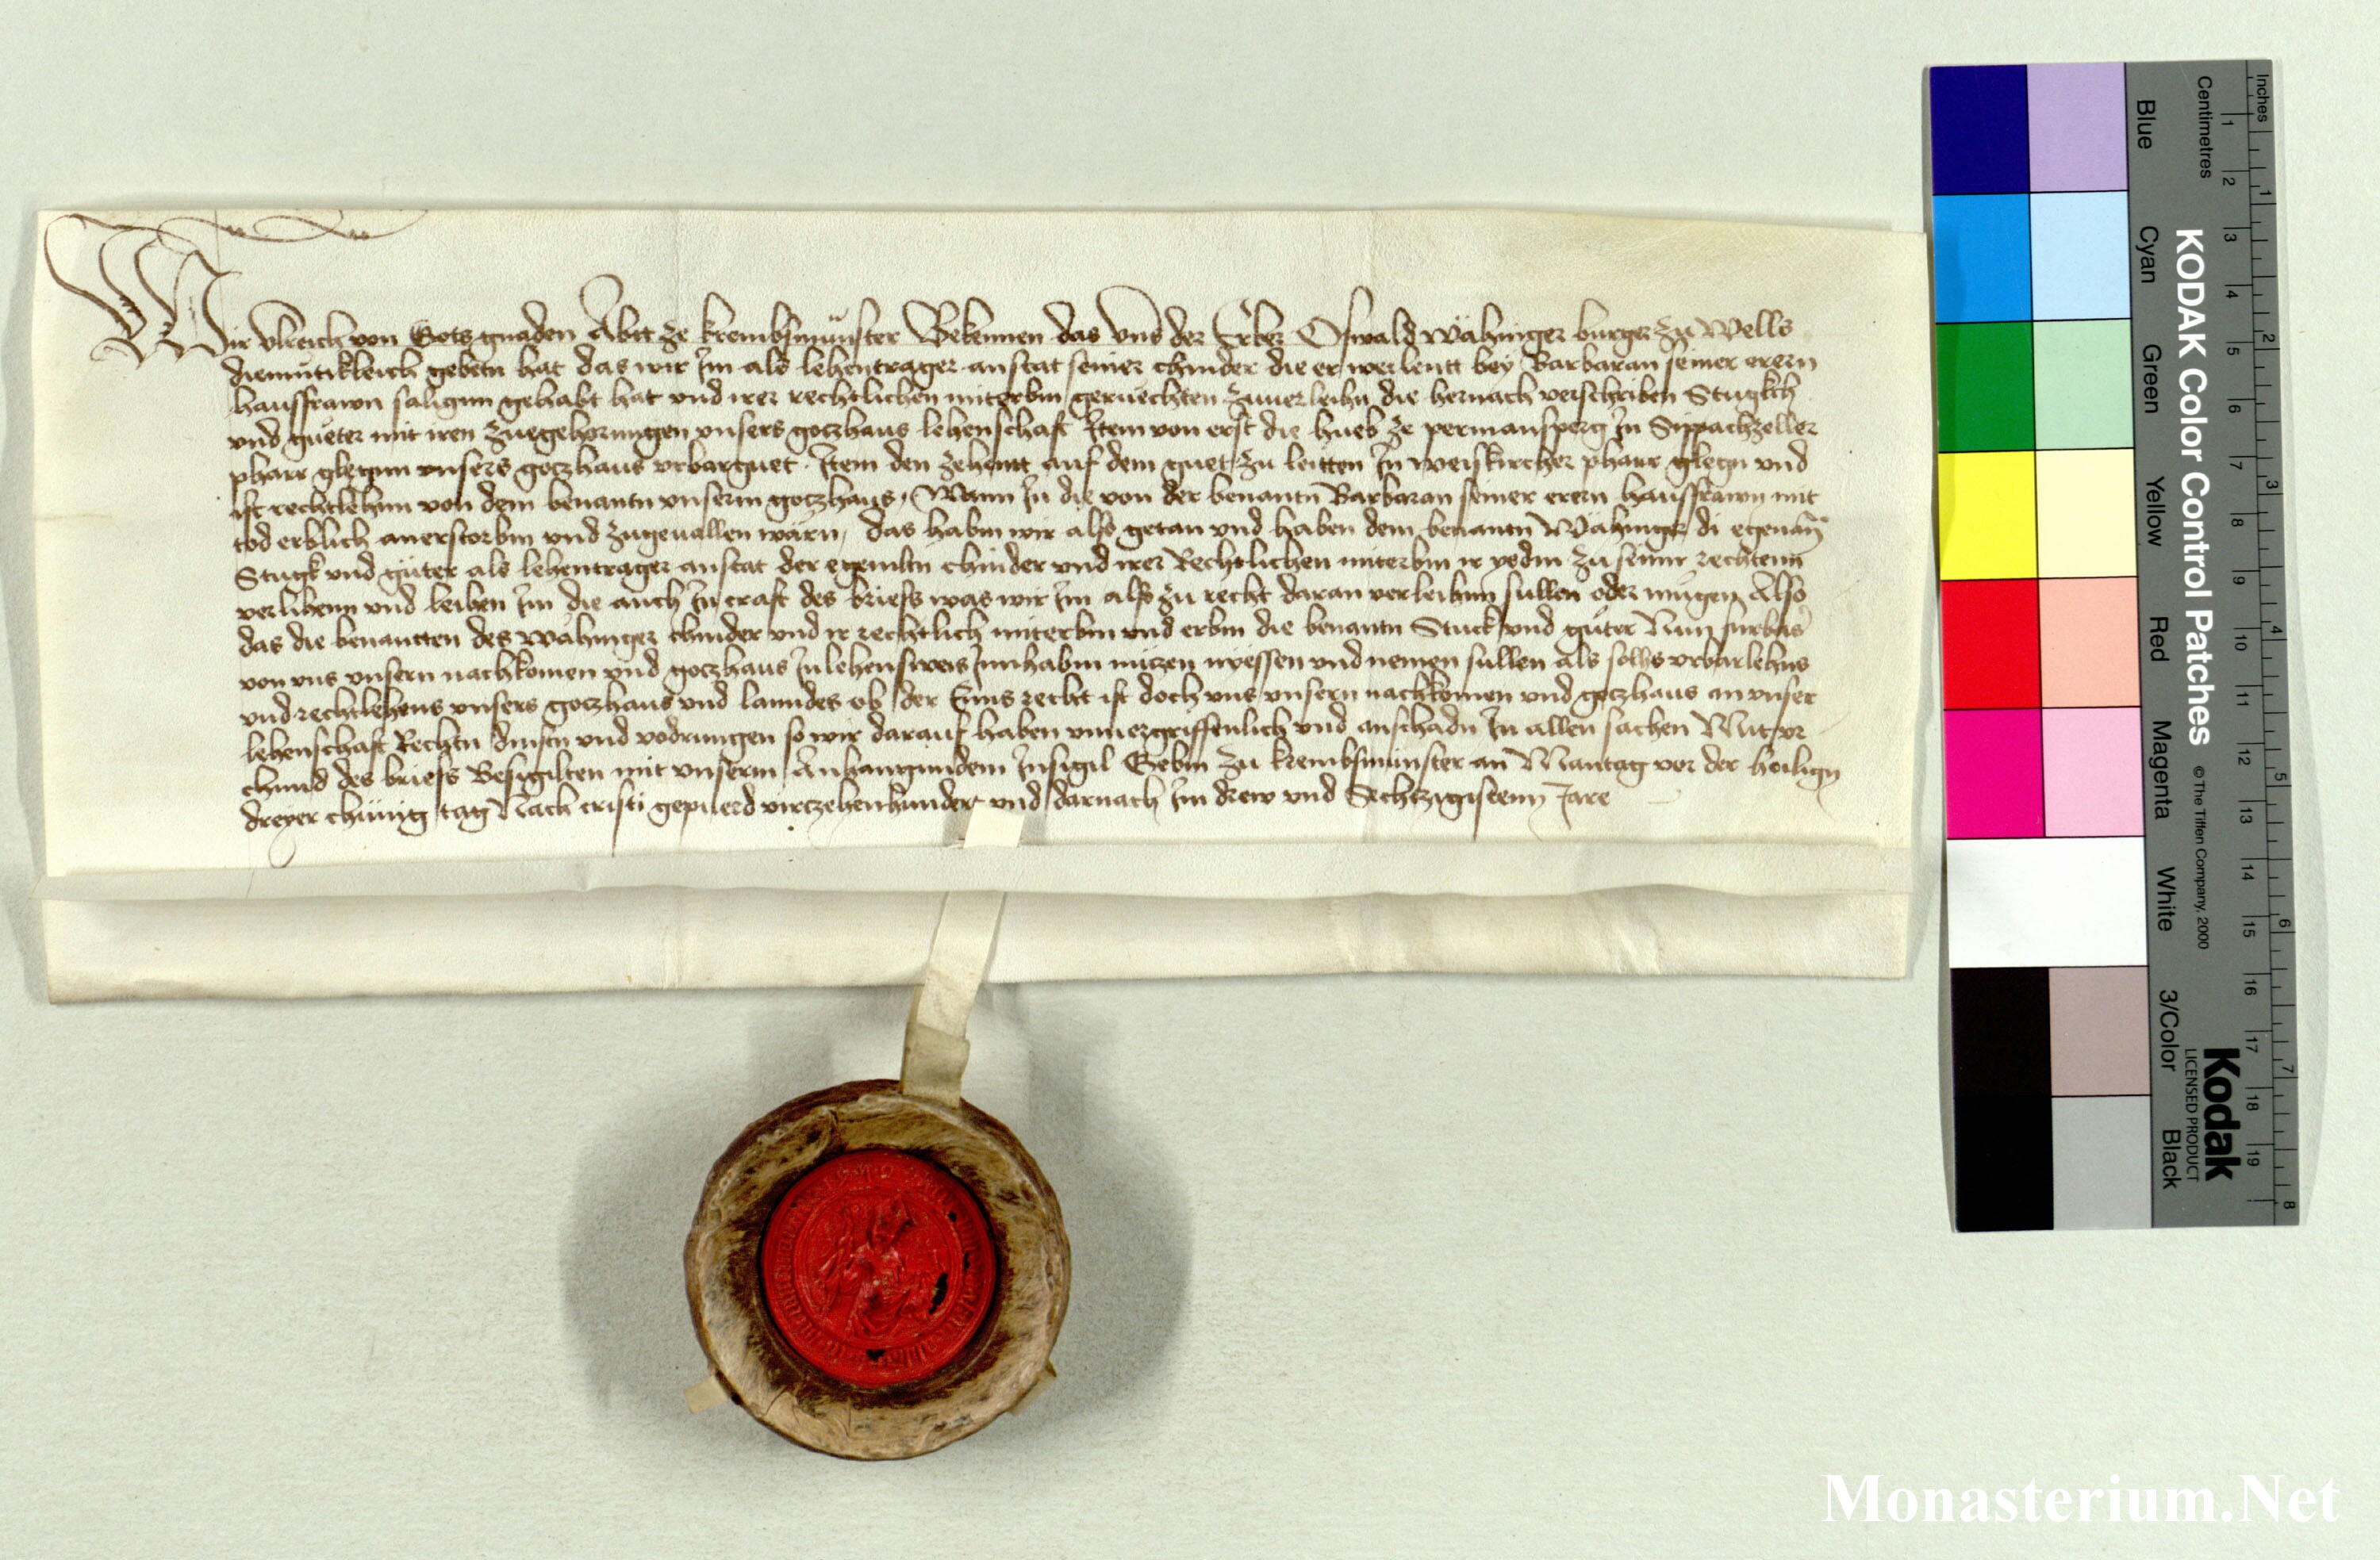 Wir Ulreich von Gots gnaden Abtt ze krembsmünster Bekennen das uns der Erber Oswald Wähinger burger zu Wells
diemutikleich gebetn hat das wir Im als lehentrager anstat seiner chinder die er weilentt bey Barbaran seiner erern
hausfrawn saligen gehabt hat und irer rechtlichen miterbm geruechten zuuerleihn die hernach verschriben Stugkch
und gueter mit iren zuegehorungen unsers goczhaus lehenschaft Item von erst die hueb ze permansperg In Sippachzeller
pharr glegnn unsers goczhaus urbarguet Item den zehentt auf dem guet zu leitten In weiskircher pharr glegn und
ist rechtlehnn von dem benantn unserm goczhaus, Wann In die von der benantn Barbaran seiner erern hausfrawn mit
tod erblich anerstorbm und zugeuallen wärn, das habm wir also getan und haben dem benantn Wähinger di egenan̄
Stugk und güter als lehentrager anstat der egemltn chinder und irer Rechtlichen miterbm ir yedm zu seinn rechtenn
verlihenn und leihen Im die auch In craft des briefs was wir Im also zu recht daran verleihnn sullen oder mugen Also
das die benantten des Wähinger chinder und ir rechtlich miterbm und erbm die benantn Stuck und güter Nun furbas
von uns unsern nachkomen und goczhaus In lehensweis Innhabm nüczen nyessen und nemen sullen als solhs urbarlehns
und rechtlehens unsers goczhaus und lanndes ob der Enns recht ist doch uns unsern nachkomen und goczhaus an unser
lehenschaft Rechtn dinstn und vodrungen so wir darauf haben unuergriffenlich und anschadn In allen sachen Mit ur
chund des briefs Besigilten mit unserm Anhangundem Insigil Gebm zu krembsmünster an Mantag vor der heiligen
dreyer chünig tag Nach cristi gepuerd virczehenhundert und darnach Im drew und Sechtzigistenn Jare
Inches
Centimetres
KODAK Color Control Patches
© The Tiffen Company, 2000
Kodak
LICENSED PRODUCT
Blue
Cyan
Green
Yellow
Red
Magenta
White
3/Color
Black
1 2 3 4 5 6 7 8 9 10 11 12 13 14 15 16 17 18 19
1 2 3 4 5 6 7 8
Monasterium.Net